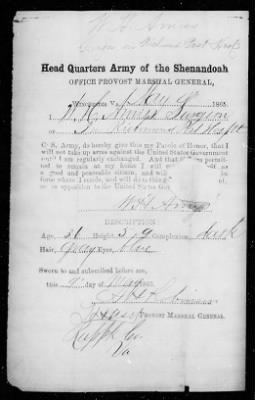 W. H. Amiss
Surgeon
Head Quarters Army of the Shenandoah
OFFICE PROVOST MARSHAL GENERAL,
WINCHESTER VA., May 9 1865.
I, W. H. Amiss Surgeon
of
C. S. Army, do hereby give this my Parole of Honor, that I
will not take up arms against the United States Government
until I am regularly exchanged. And that if I am permitted
to remain at my home I will conduct myself as
a good and peaceable citizen, and will
force where I reside, and will do nothing
in opposition to the United States Gov
W H Amiss
DESCRIPTION:
Age, 36 Height 5, 9 Complexion, dark
Hair, Grey Eyes, blue
Sworn to and subscribed before me,
this 9" day of May 1865.
PROVOST MARSHAL GENERAL.
Rapp Co.
Va